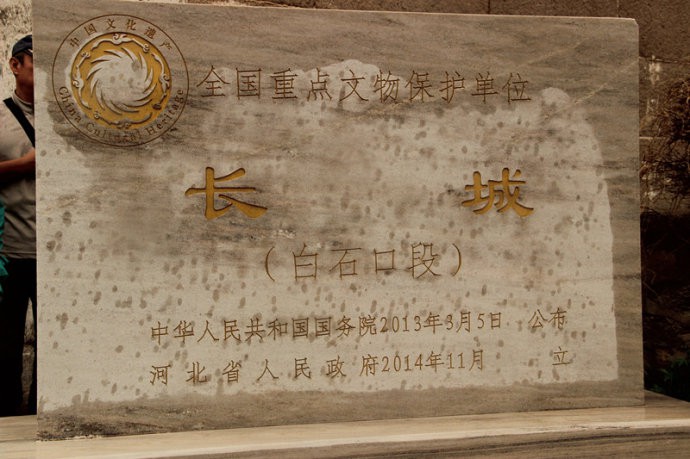 中国文化遗产
China Cultural Heritage
全国重点文物保护单位
长 城
（白石口段）
中华人民共和国国务院2013年3月5日 公布
河北省人民政府2014年11月 立